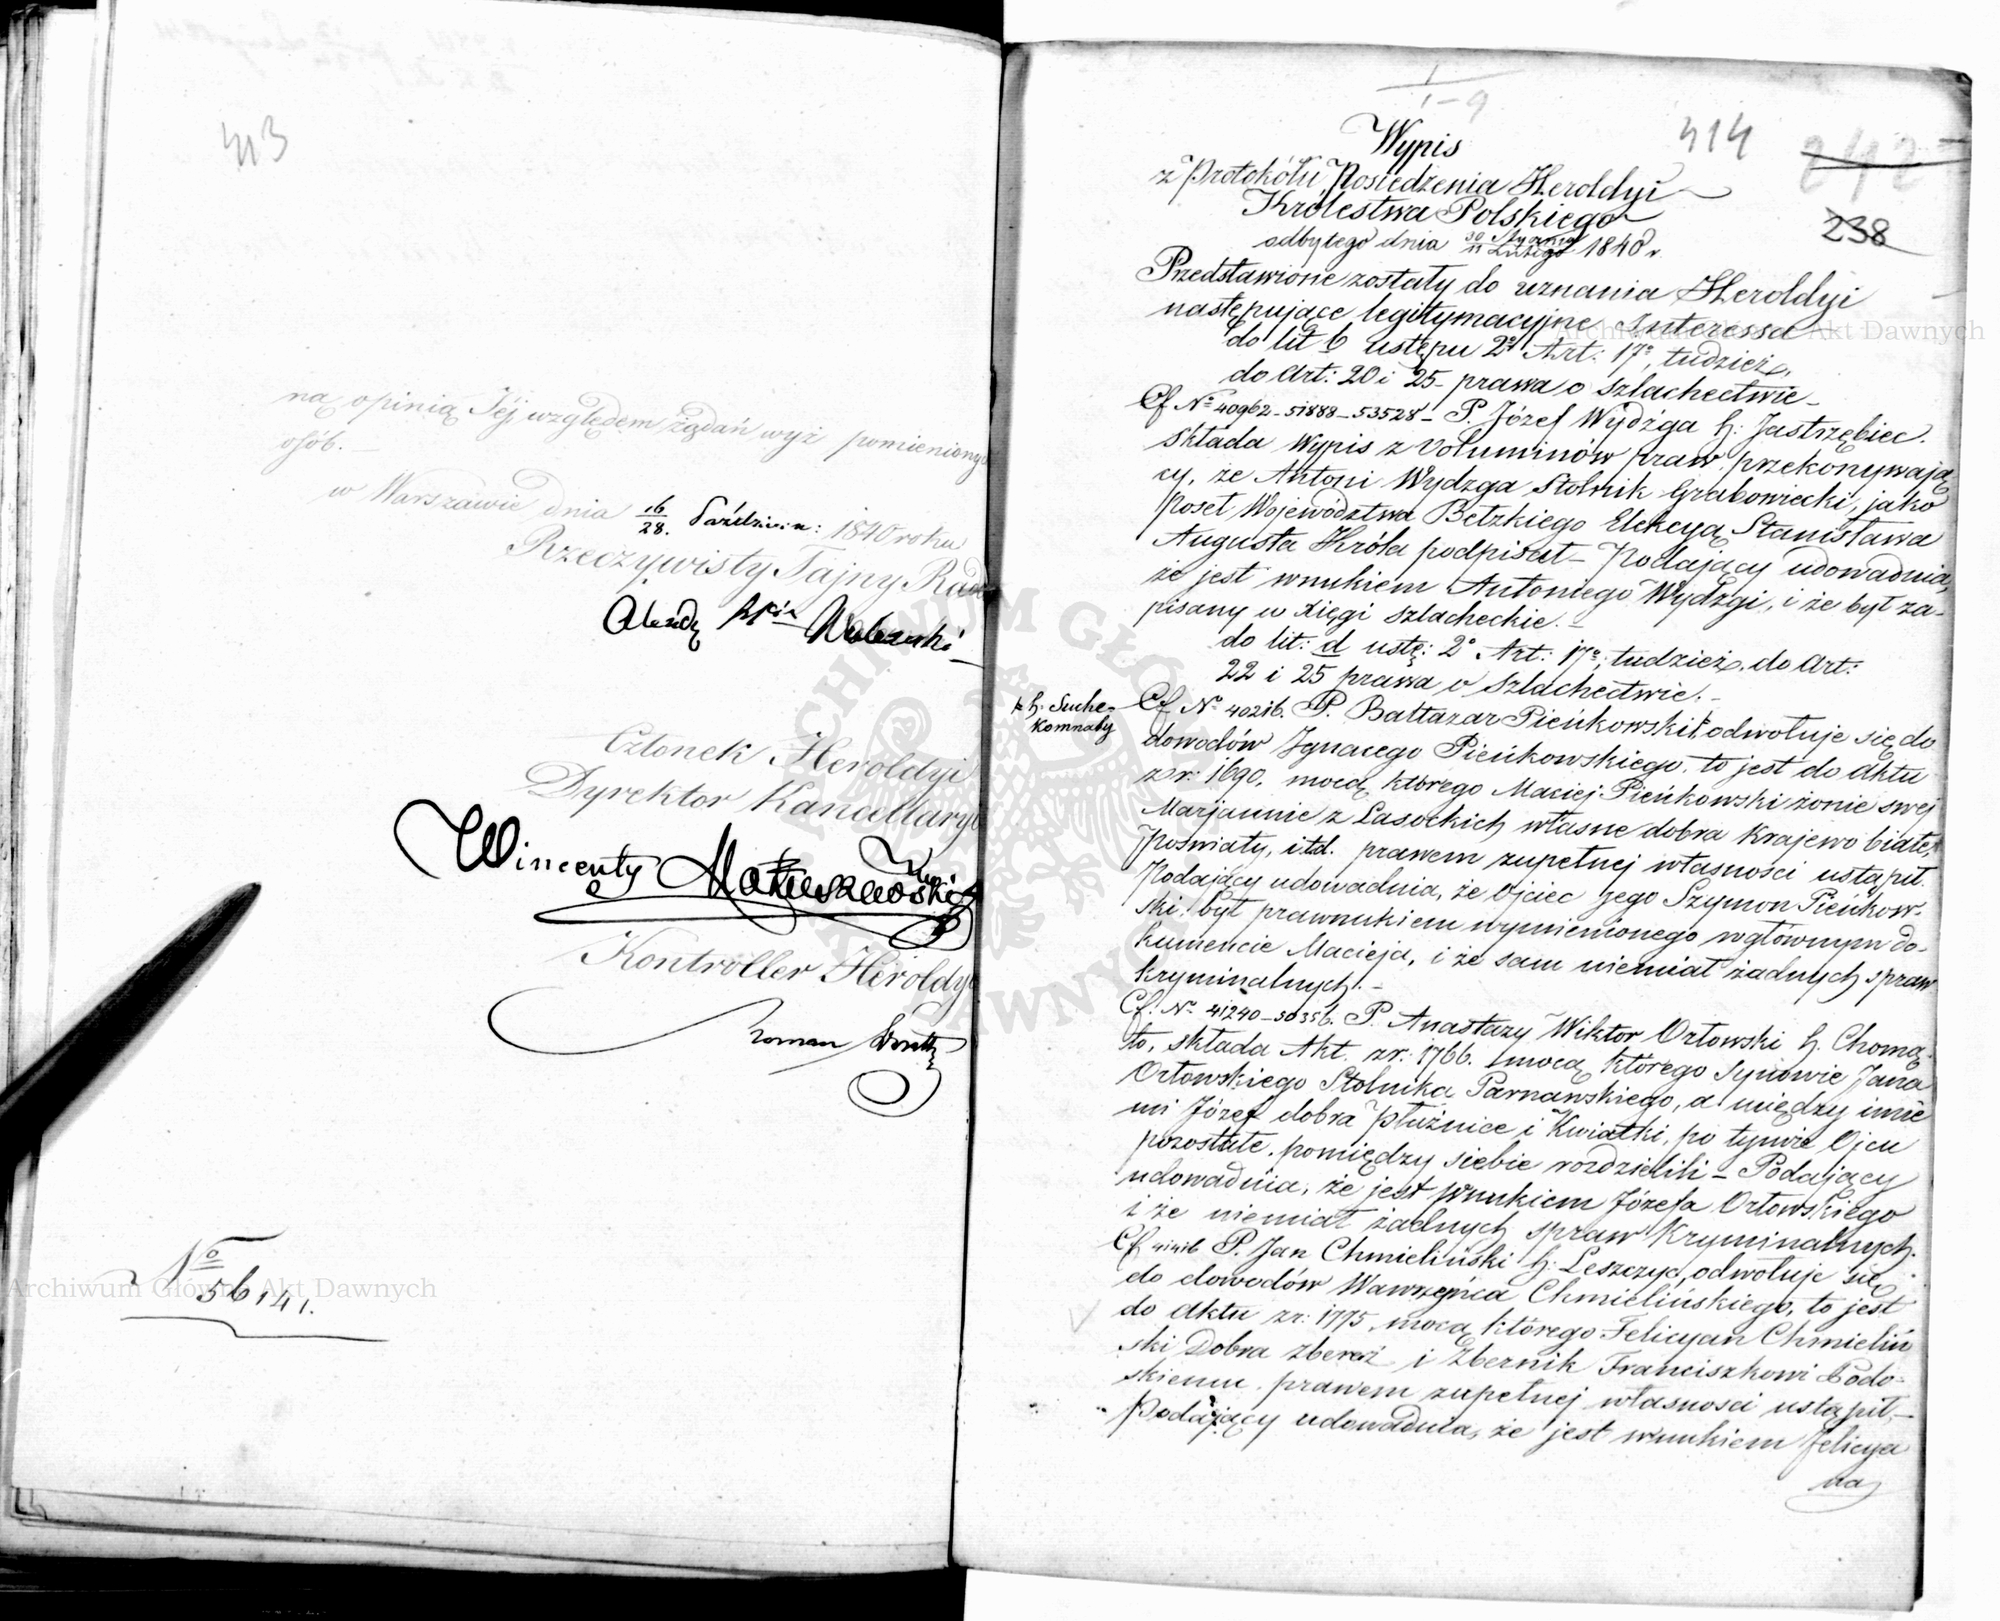 413
na opinią Jéj względem żądań wyż pomienionych
osób. —
w Warszawie dnia 16/28. Paździer: 1840 roku
Rzeczywisty Tajny Radca
Członek Heroldyi
Dyrektor Kancellaryi
Wincenty Matuszewski
Kontroller Heroldyi
Roman
No 56141.
1/1-9
414
242
238
Wypis
z Protokółu Posiedzenia Heroldyi
Królestwa Polskiego
odbytego dnia 30 Stycznia/11 Lutego 1840 r.
Przedstawione zostały do uznania Heroldyi
następujące legitymacyjne Interessa
do lit b ustępu 2o Art: 17o, tudzież,
do Art: 20 i 25 prawa o szlachectwie —
Cf No 40962 - 51888 - 53528 - P. Józef Wydżga h: Jastrzębiec.
składa Wypis z Voluminów praw przekonywają
cy, że Antoni Wydżga Stolnik Grabowiecki, jako
Poseł Województwa Bełzkiego Elekcyą Stanisława
Augusta Króla podpisał — Podający udowadnia,
że jest wnukiem Antoniego Wydżgi, i że był za-
pisany w Xięgi szlacheckie. —
do lit: d ustę: 2o Art: 17o, tudzież do Art:
22 i 25 prawa o Szlachectwie. —
h. Suche-
Komnaty
Cf No 40216. P. Baltazar Pieńkowski odwołuje się do
dowodów Ignacego Pieńkowskiego, to jest do Aktu
z r: 1690, mocą którego Maciej Pieńkowski żonie swej
Marjannie z Lasockich własne dobra Krajewo białe,
Poświaty, i.t.d. prawem zupełnej własności ustąpił.
Podający udowadnia, że ojciec jego Szymon Pieńkow-
ski był prawnukiem wymienionego w głównym do-
kumencie Macieja, i że sam niemiał żadnych spraw
kryminalnych. —
Cf. No 41240 - 50356. P. Anastazy Wiktor Orłowski h. Chomą
to, składa Akt z r: 1766. mocą którego Synowie Jana
Orłowskiego Stolnika Parnawskiego, a między inne
mi Józef dobra Płużnice i Kwiatki, po tymże Ojcu
pozostałe, pomiędzy siebie rozdzielili — Podający
udowadnia, że jest wnukiem Józefa Orłowskiego
i że niemiał żadnych spraw Kryminalnych.
Cf 41416 P. Jan Chmieliński h: Leszczyc, odwołuje się
do dowodów Wawrzyńca Chmielińskiego, to jest
do Aktu z r: 1775, mocą którego Felicyan Chmieliń
ski Dobra Zbereż i Zbernik Franciszkowi Podo-
skiemu prawem zupełnej własności ustąpił, —
Podający udowadnia, że jest wnukiem Felicya
na
Archiwum Główne Akt Dawnych
Archiwum Główne Akt Dawnych
ARCHIWUM GŁÓWNE AKT DAWNYCH